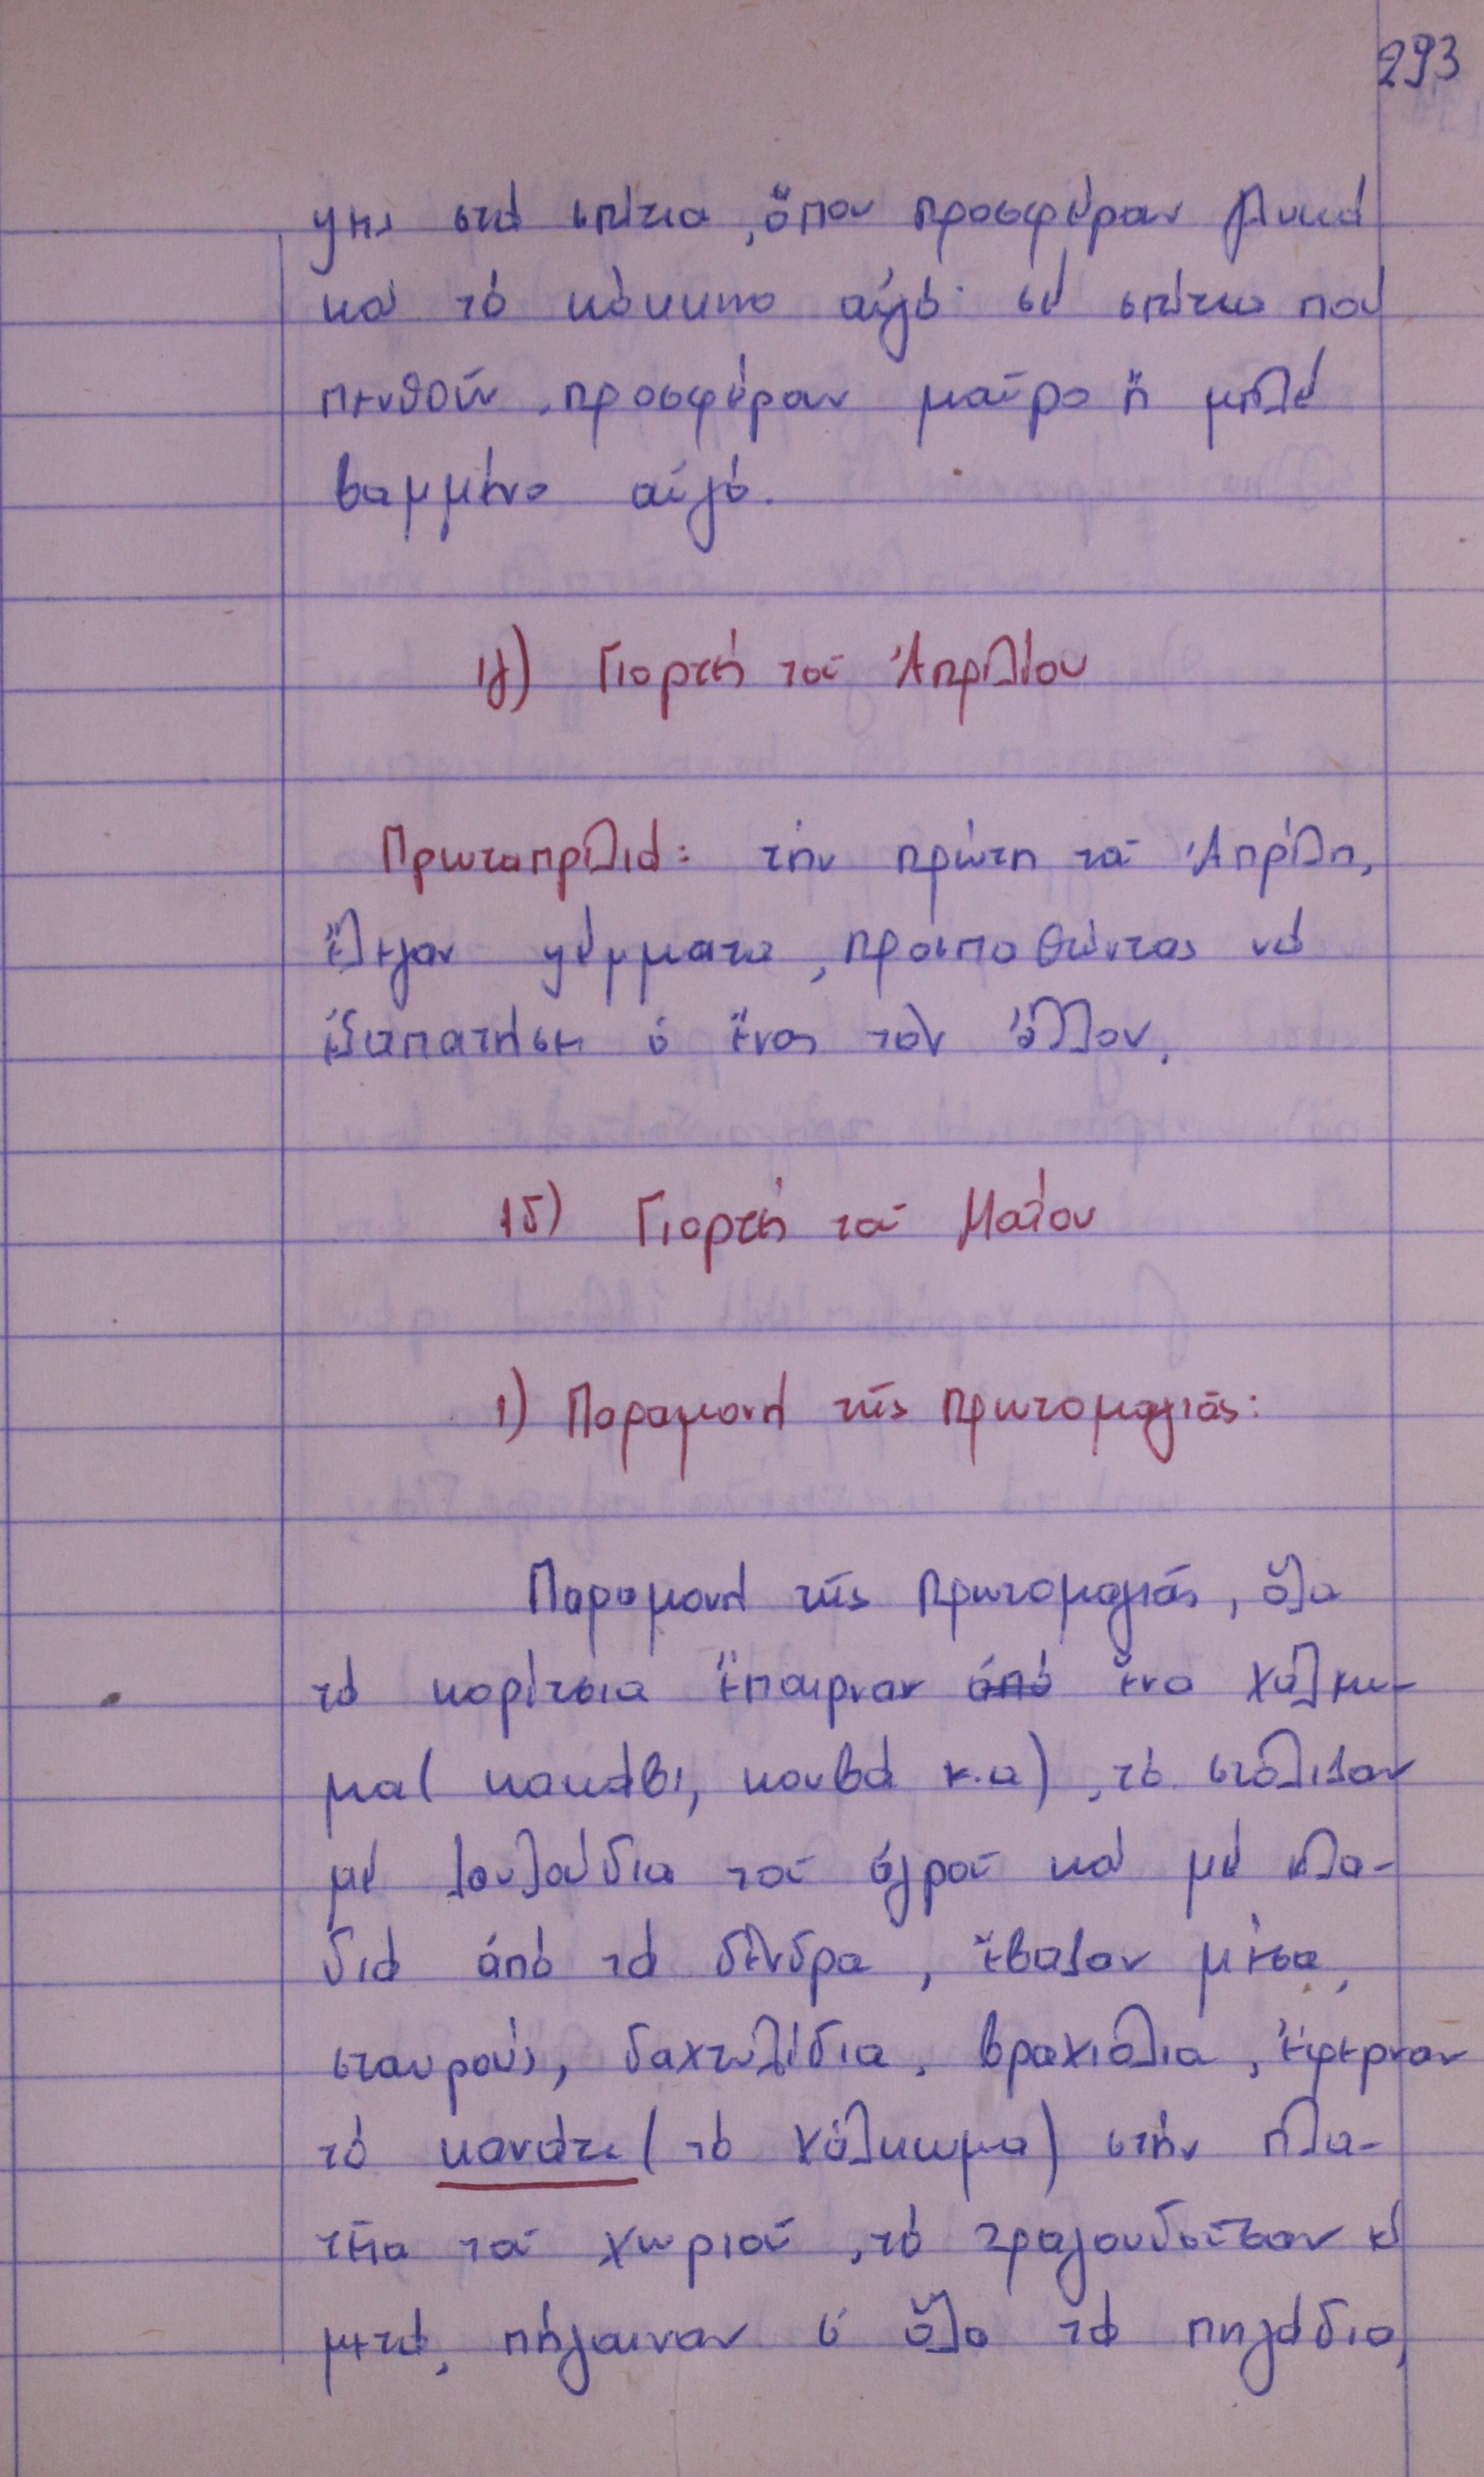 293
ψεις στά σπίτια, ὅπου προσφέραν γλυκά
καί τό κόκκινο αὐγό· σέ σπίτια πού
πενθοῦν, προσφέραν μαῦρο ἤ μπλέ
βαμμένο αὐγό.
ιγ) Γιορτή τοῦ Ἀπριλίου
Πρωταπριλιά: τήν πρώτη τοῦ Ἀπρίλη,
ἔλεγαν ψέμματα, προσπαθώντας νά
ἐξαπατήσει ὁ ἕνας τόν ἄλλον.
ιδ) Γιορτή τοῦ Μαΐου
1) Παραμονή τῆς Πρωτομαγιᾶς:
Παραμονή τῆς Πρωτομαγιᾶς, ὅλα
τά κορίτσια ἔπαιρναν ἀπό ἕνα χάλκω-
μα( κακάβι, κουβά κ.α), τό στόλιζαν
μέ λουλούδια τοῦ ἀγροῦ καί μέ κλα-
διά ἀπό τά δένδρα, ἔβαζαν μέσα,
σταυρούς, δαχτυλίδια, βραχιόλια, ἔφερναν
τό κανάτι( τό χάλκωμα) στήν πλα-
τεῖα τοῦ χωριοῦ, τό τραγουδοῦσαν κ'
μετά, πήγαιναν σ' ὅλα τά πηγάδια,